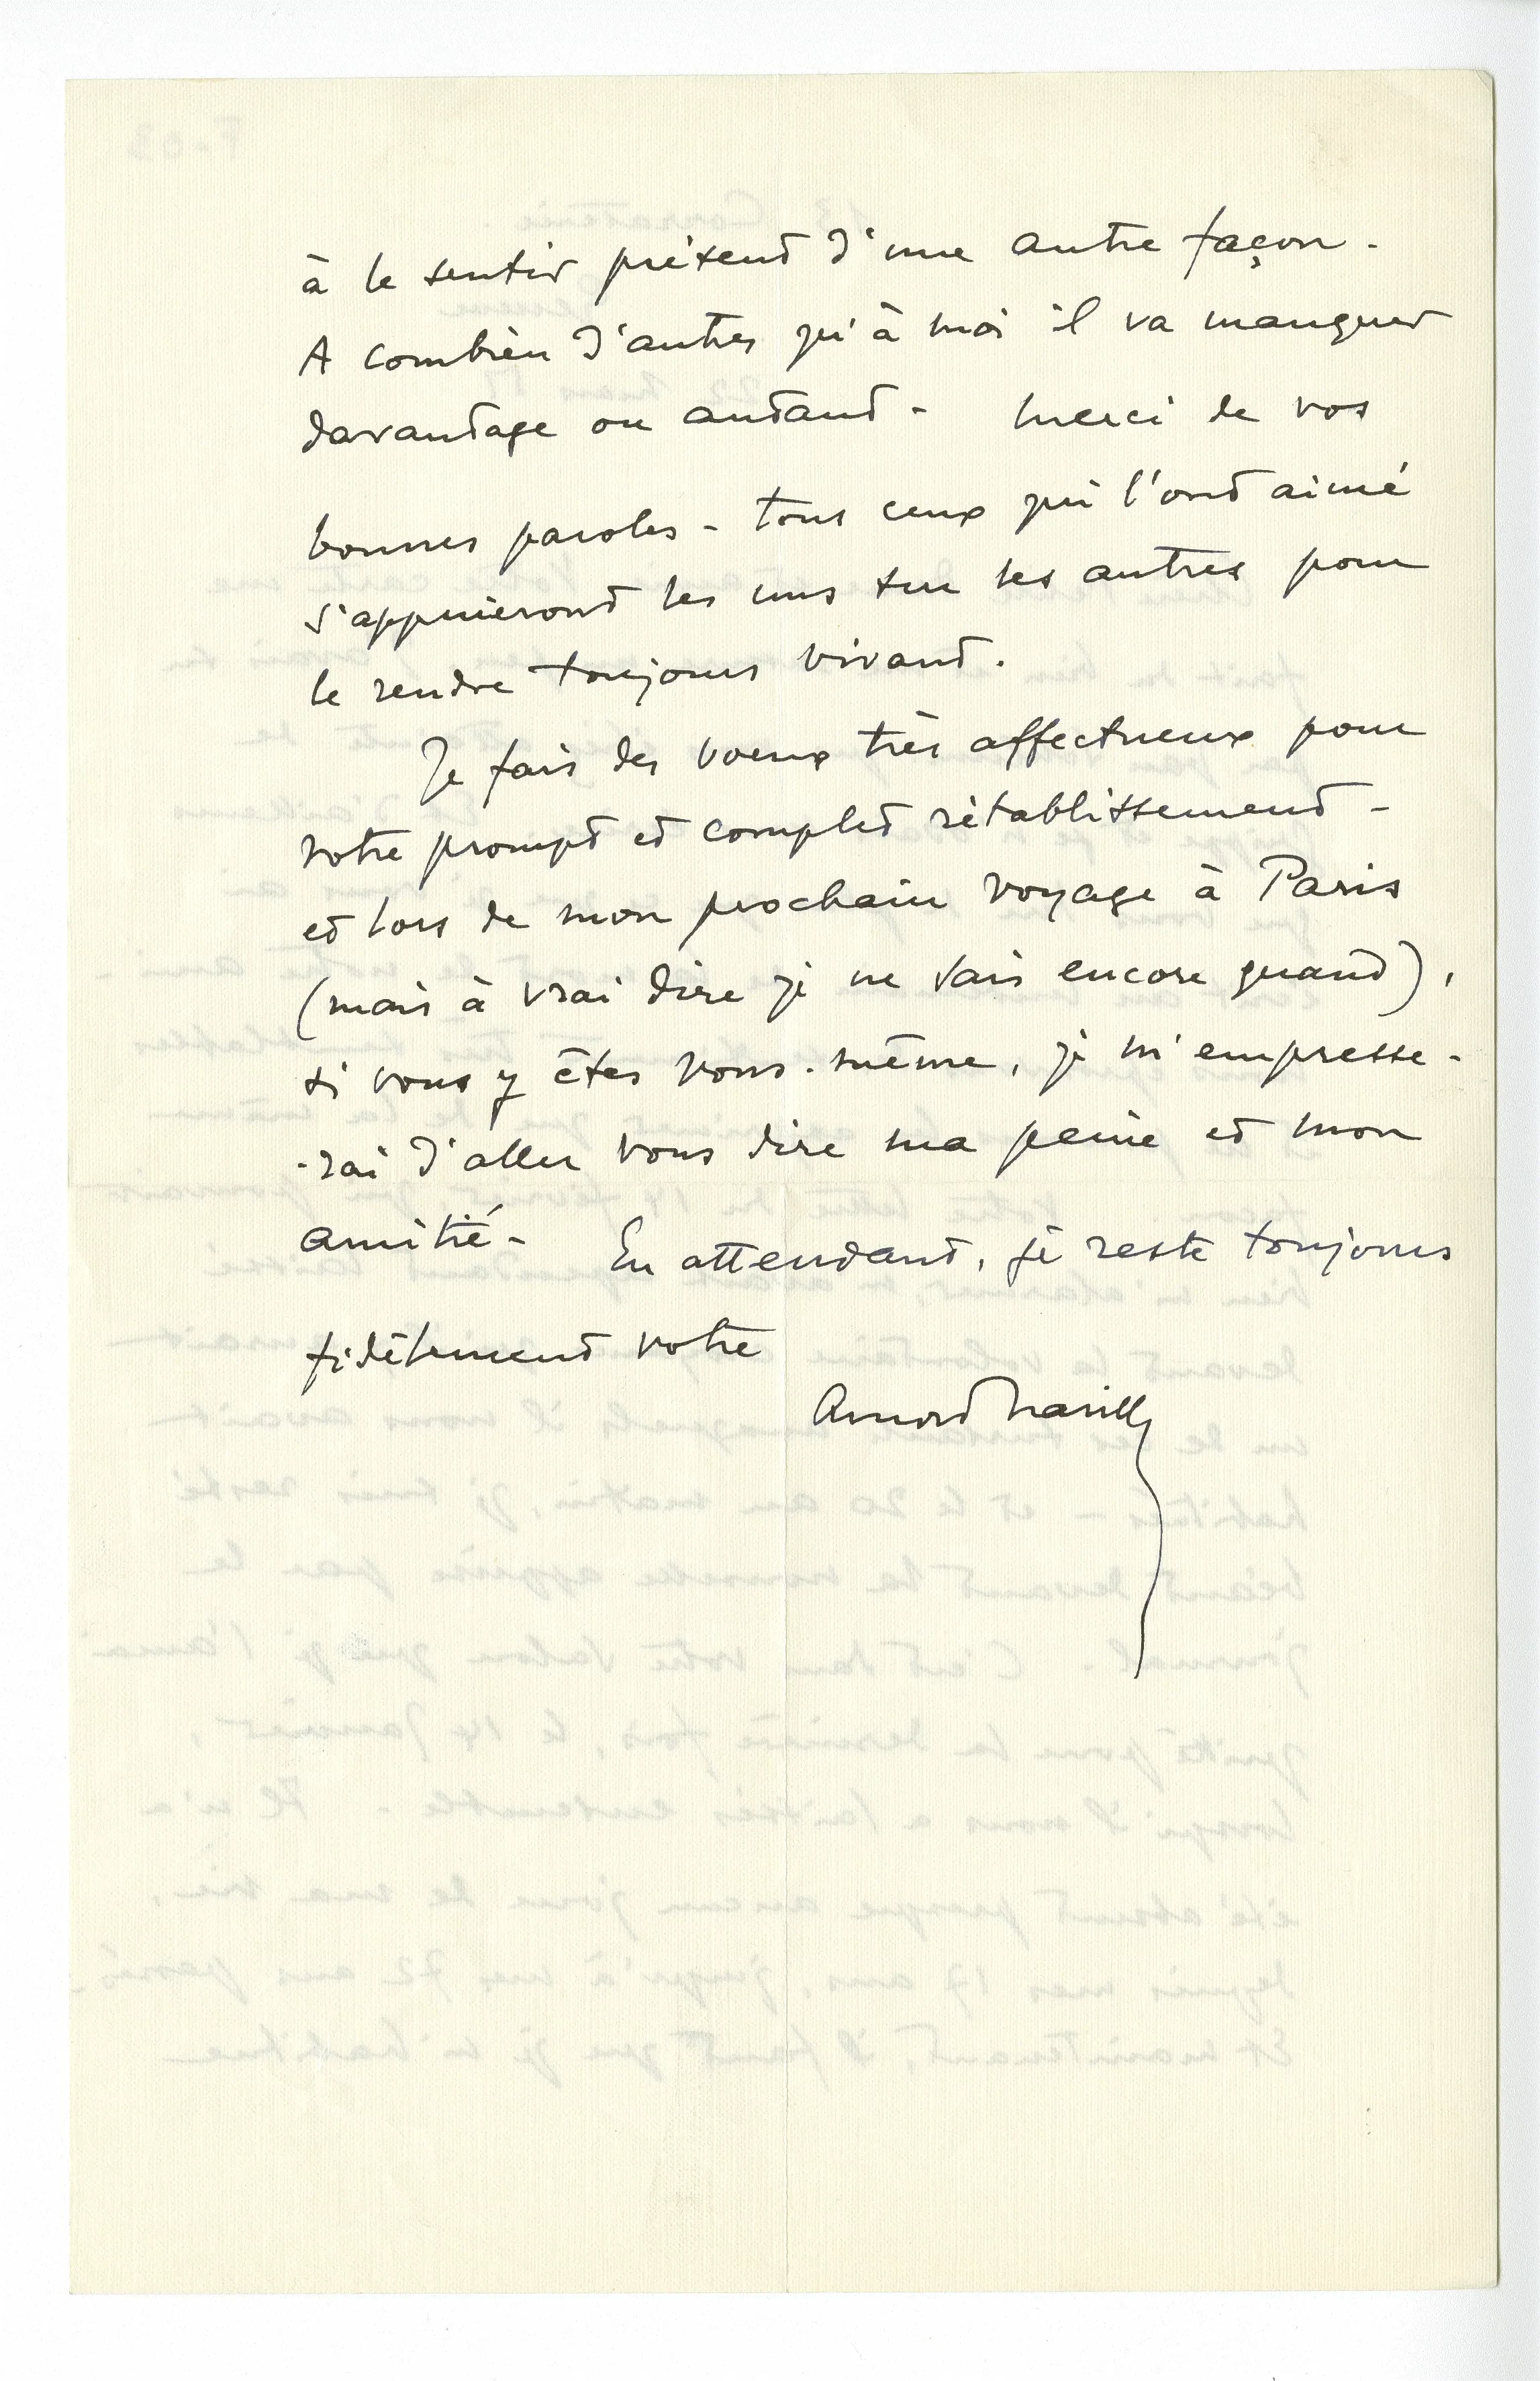 à le sentir présent d'une autre façon -
A combien d'autres qu'à moi il va manquer
davantage ou autant - Merci de vos
bonnes paroles - tous ceux qui l'ont aimé
s'appuieront les uns sur les autres pour
le rendre toujours vivant.
Je fais des voeux très affectueux pour
votre prompt et complet rétablissement -
et lors de mon prochain voyage à Paris
(mais à vrai dire je ne sais encore quand),
si vous y êtes vous-même, je m'empresse-
-rai d'aller vous dire ma peine et mon
amitié - En attendant, je reste toujours
fidèlement votre
Arnold Naville